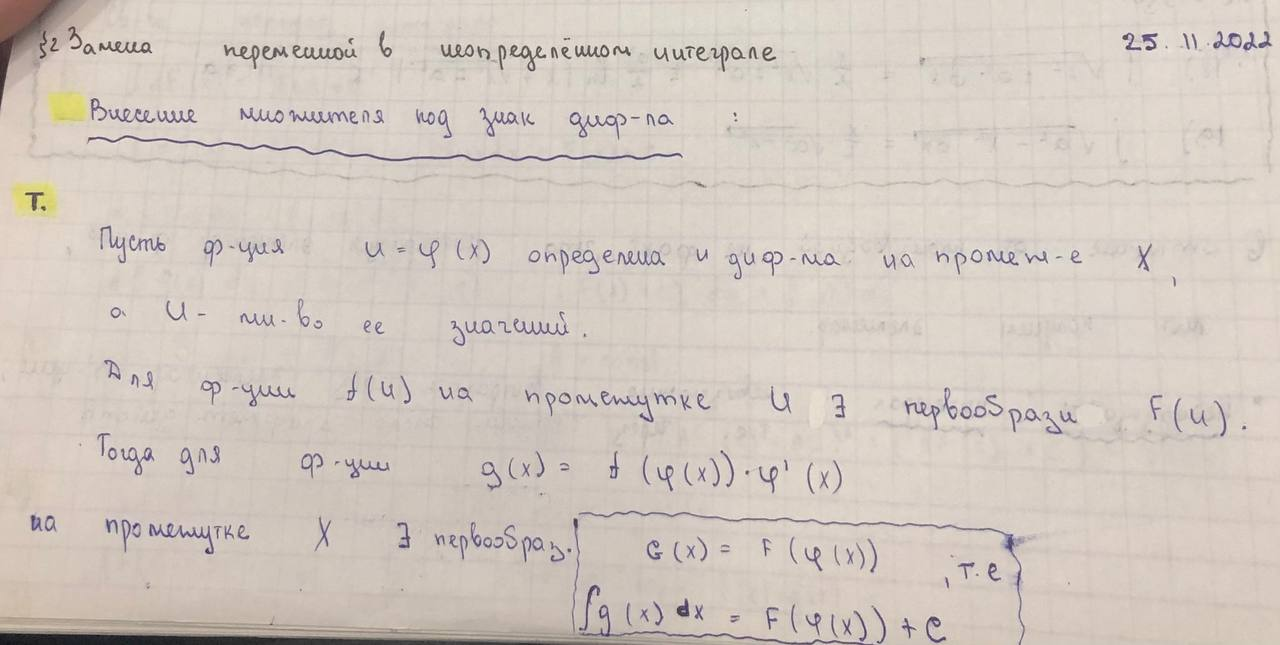 §2 Замена переменной в неопределённом интеграле 25.11.2022
Внесение множителя под знак диф-ла :
Т.
Пусть ф-ция u = φ(x) определена и диф-ма на промеж-е X,
а U - мн-во ее значений.
Для ф-ции f(u) на промежутке U ∃ первообразн F(u).
Тогда для ф-ции g(x) = f(φ(x))·φ'(x)
на промежутке X ∃ первообраз. G(x) = F(φ(x)) , т.е
∫g(x) dx = F(φ(x)) + C